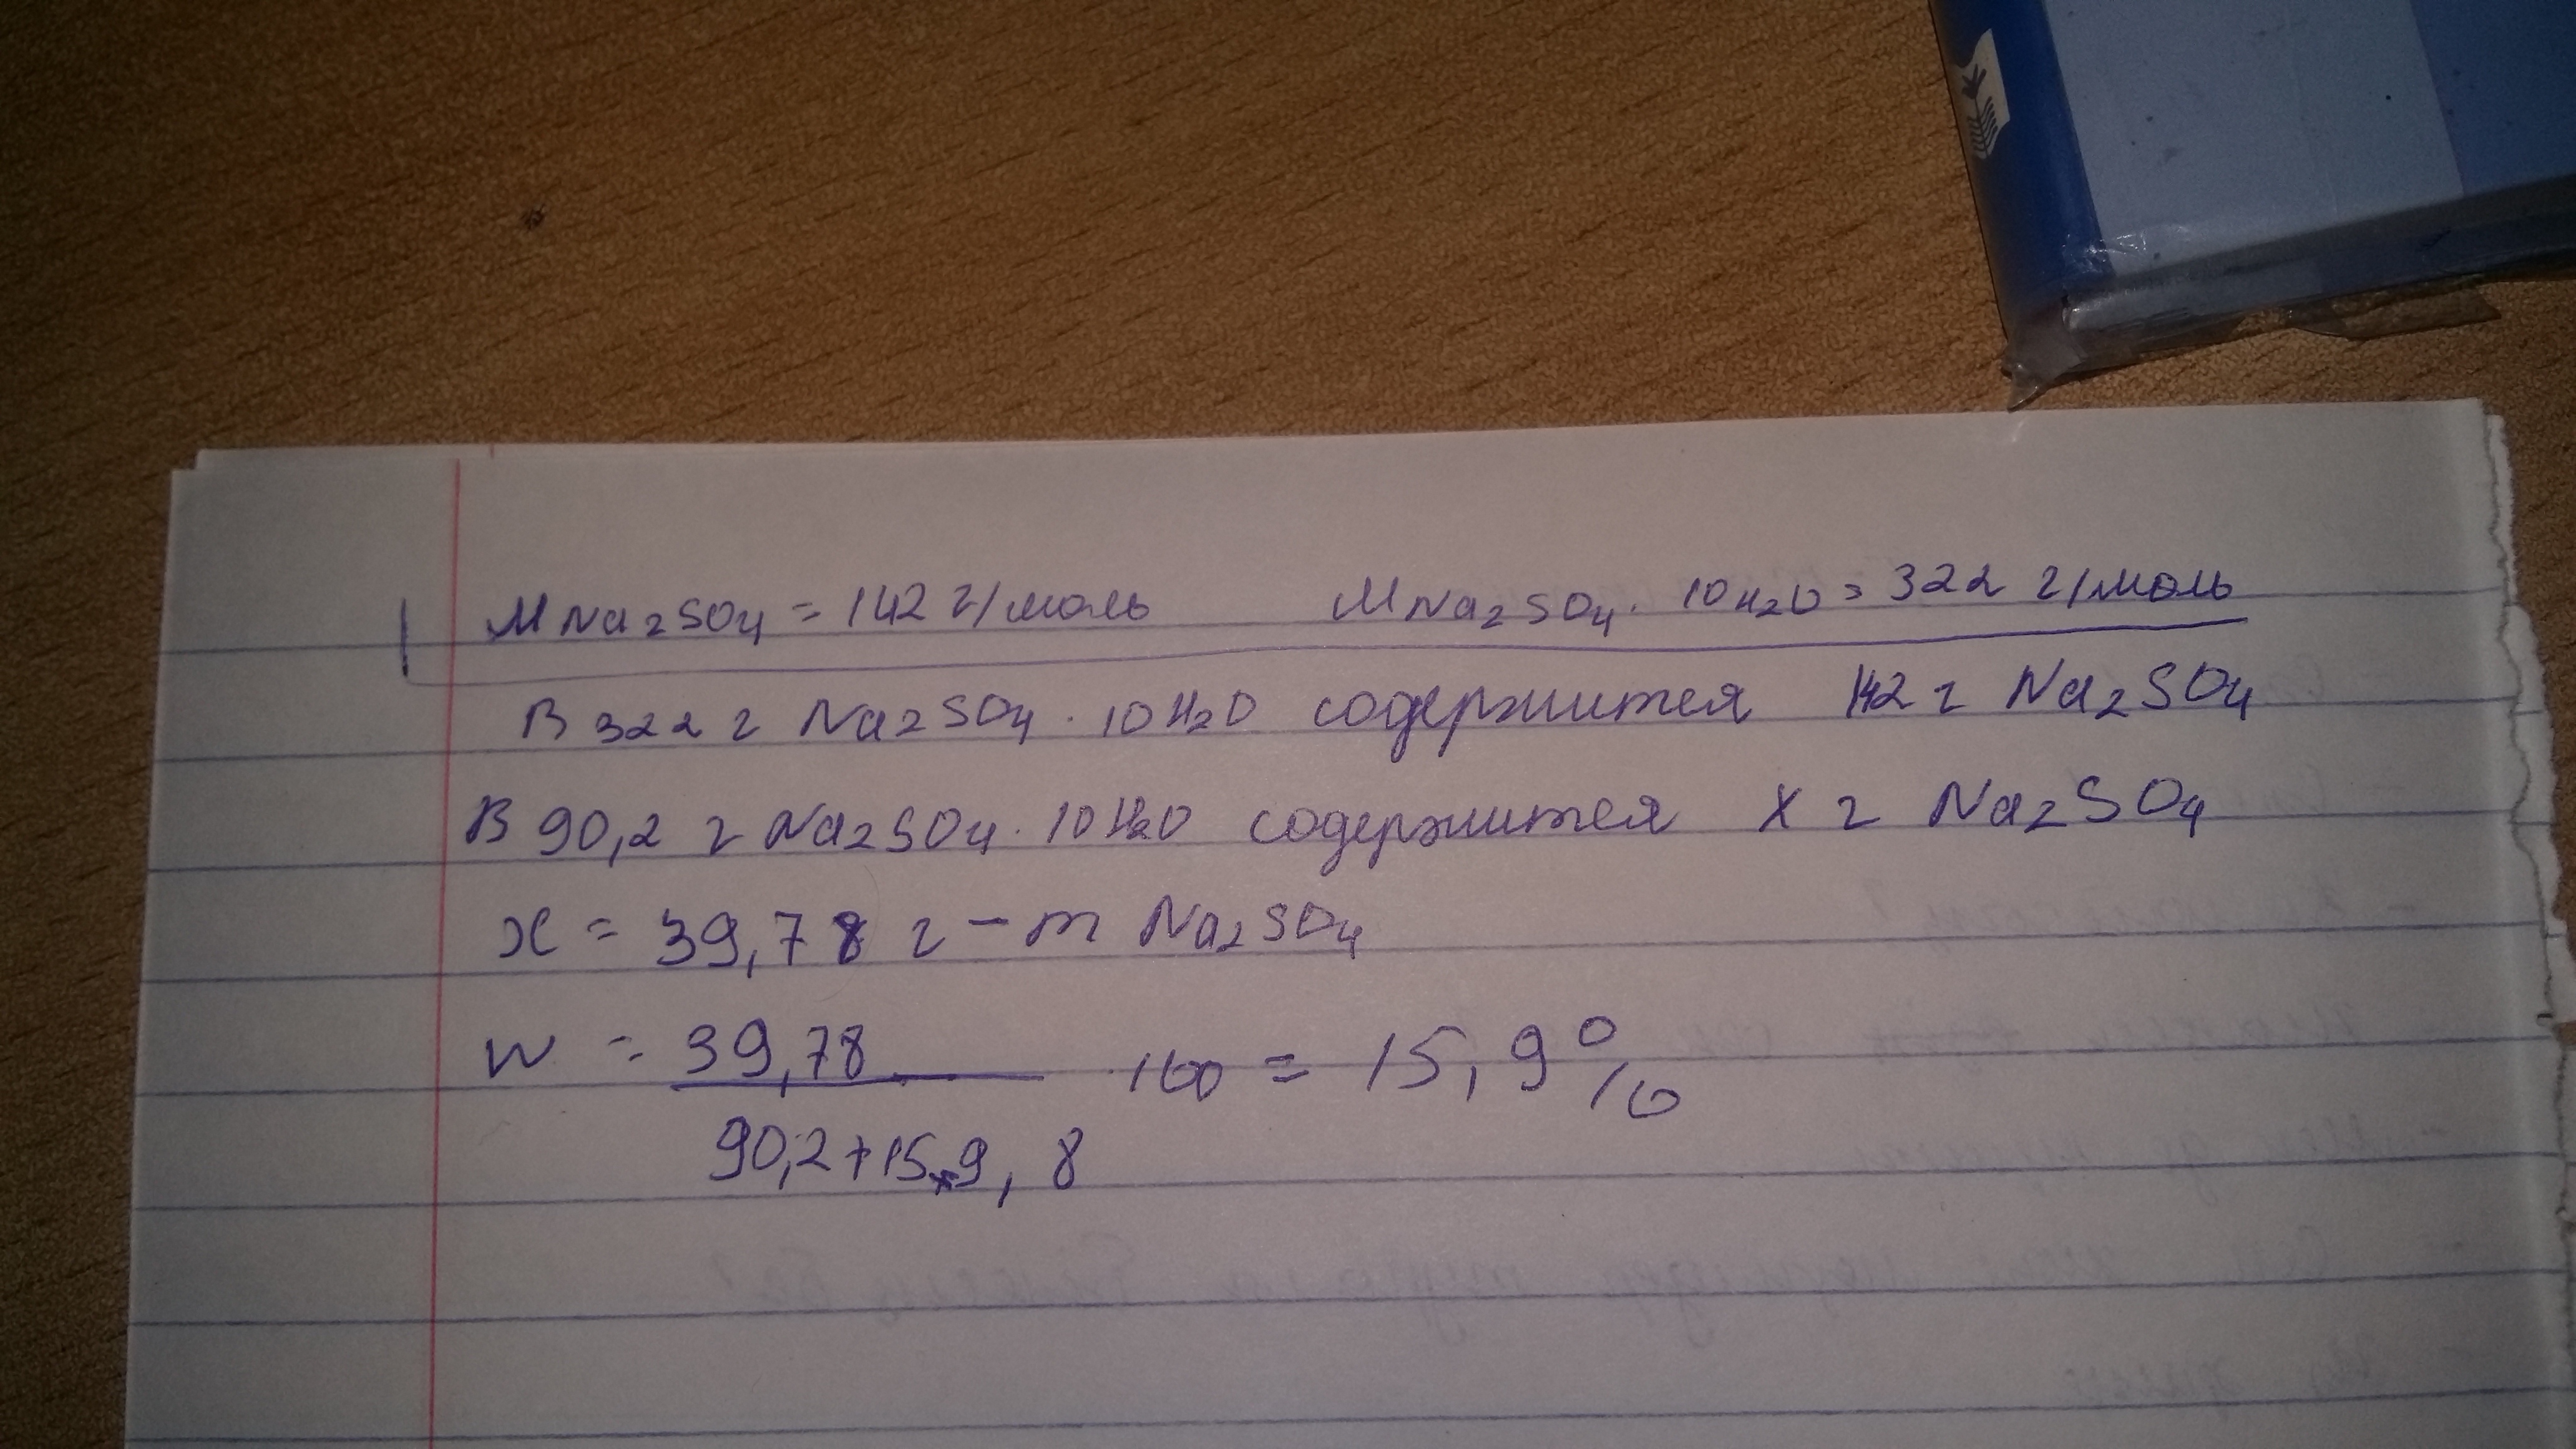 M Na₂SO₄ = 142 г/моль M Na₂SO₄ · 10H₂O = 322 г/моль
В 322 г Na₂SO₄ · 10H₂O содержится 142 г Na₂SO₄
В 90,2 г Na₂SO₄ · 10H₂O содержится X г Na₂SO₄
x = 39,78 г – m Na₂SO₄
W = 39,78 · 100 = 15,9 %
90,2+159,8